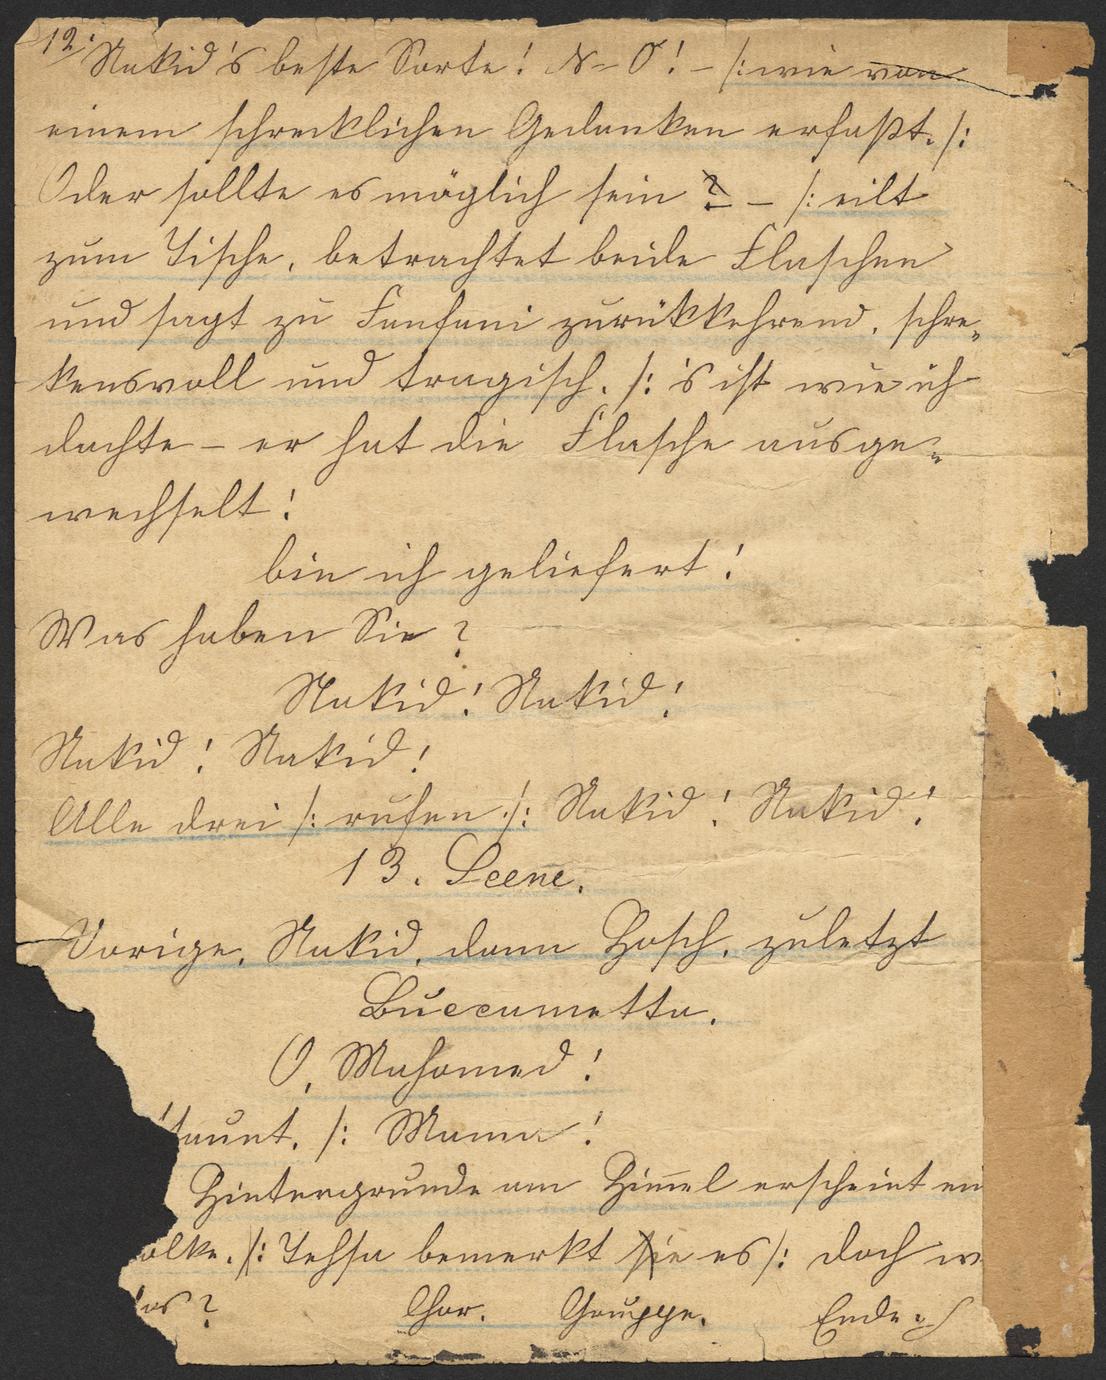 12. Nakid's beste Sorte! N– O! – /: wie von
einem schrecklichen Gedanken erfaßt. /:
Oder sollte es möglich sein ? – /: eilt
zum Tische, betrachtet beide Flaschen
und sagt zu Fanfani zurükkehrend, schre„
kensvoll und tragisch. /: 's ist wie ich
dachte – er hat die Flasche ausge„
wechselt!
bin ich geliefert!
Was haben Sie?
Nakid! Nakid!
Nakid! Nakid!
Alle drei /: rufen :/: Nakid! Nakid!
13. Scene.
Vorige, Nakid, dann Hosch, zuletzt
Buccametta.
O, Mahomed!
taunt. /: Mama!
Hintergrunde am Him̄el erscheint ein
olke. /: Tehsa bemerkt sie es /: doch w
as?
Chor. Gruppe. Ende.